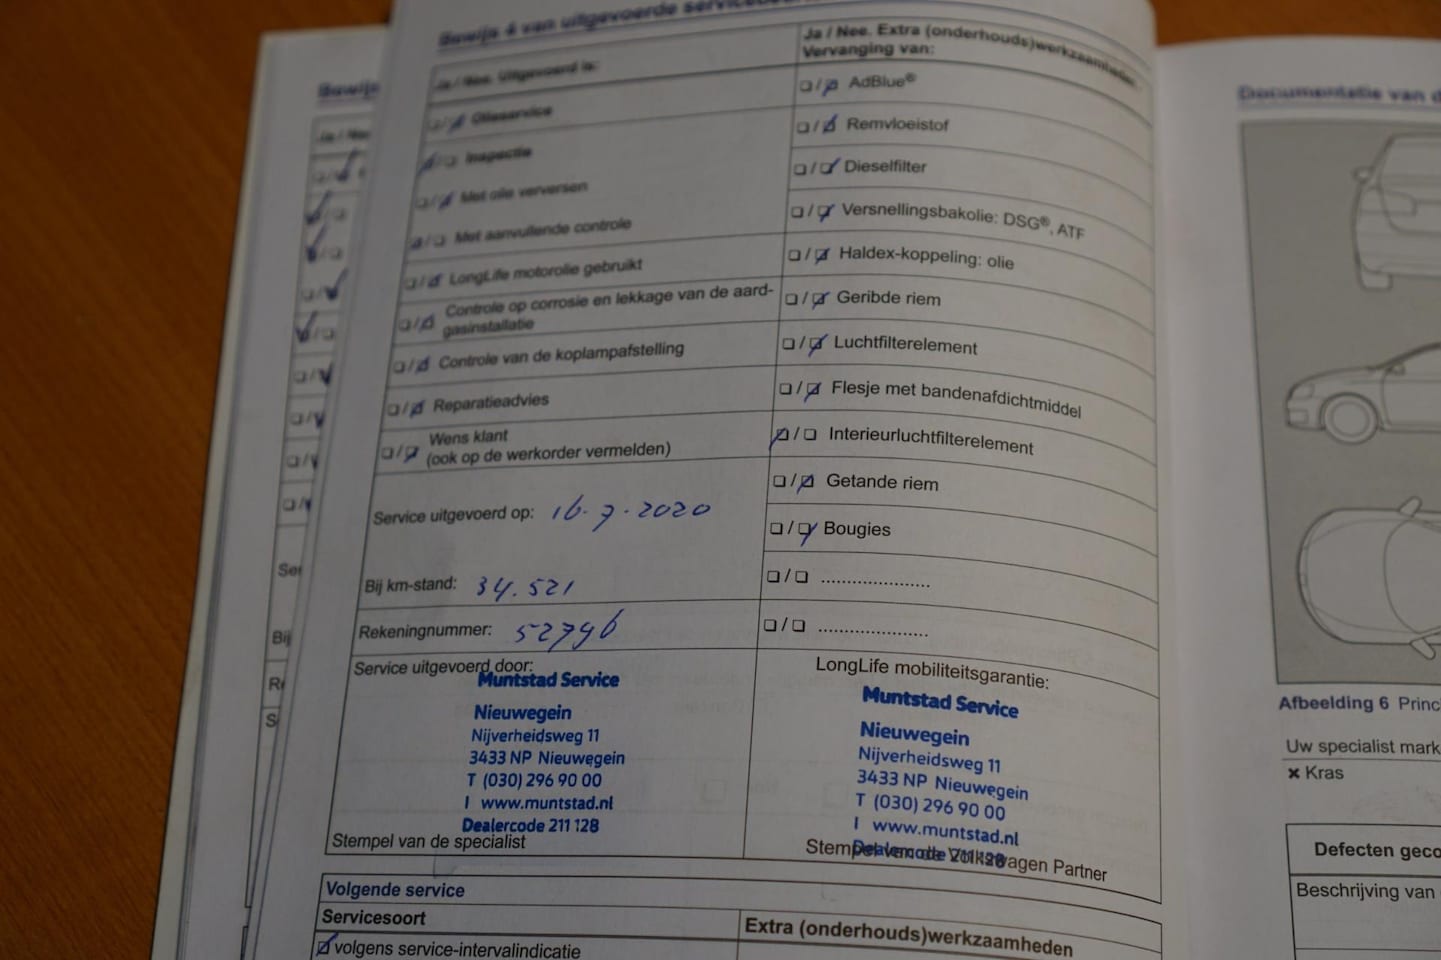 Bewijs 4 van uitgevoerde
Ja / Nee. Uitgevoerd is:
Olieservice
Inspectie
Met olie verversen
Met aanvullende controle
LongLife motorolie gebruikt
Controle op corrosie en lekkage van de aard-
gasinstallatie
Controle van de koplampafstelling
Reparatieadvies
Wens klant
(ook op de werkorder vermelden)
Service uitgevoerd op: 16-7-2020
Bij km-stand: 34.521
Rekeningnummer: 52796
Service uitgevoerd door:
Muntstad Service
Nieuwegein
Nijverheidsweg 11
3433 NP Nieuwegein
T (030) 296 90 00
I www.muntstad.nl
Dealercode 211 128
Stempel van de specialist
Ja / Nee. Extra (onderhouds)werkzaamheden.
Vervanging van:
AdBlue®
Remvloeistof
Dieselfilter
Versnellingsbakolie: DSG®, ATF
Haldex-koppeling: olie
Geribde riem
Luchtfilterelement
Flesje met bandenafdichtmiddel
Interieurluchtfilterelement
Getande riem
Bougies
LongLife mobiliteitsgarantie:
Muntstad Service
Nieuwegein
Nijverheidsweg 11
3433 NP Nieuwegein
T (030) 296 90 00
I www.muntstad.nl
Dealercode 211 128
Stempel van de Volkswagen Partner
Volgende service
Servicesoort
Extra (onderhouds)werkzaamheden
volgens service-intervalindicatie
Documentatie van d
Afbeelding 6 Princ
Uw specialist mark
× Kras
Defecten geco
Beschrijving van